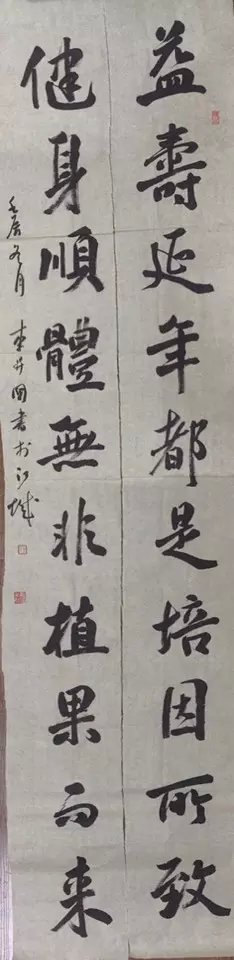 益壽延年都是培因所致
健身順體無非植果而来
壬辰冬月 書於江城